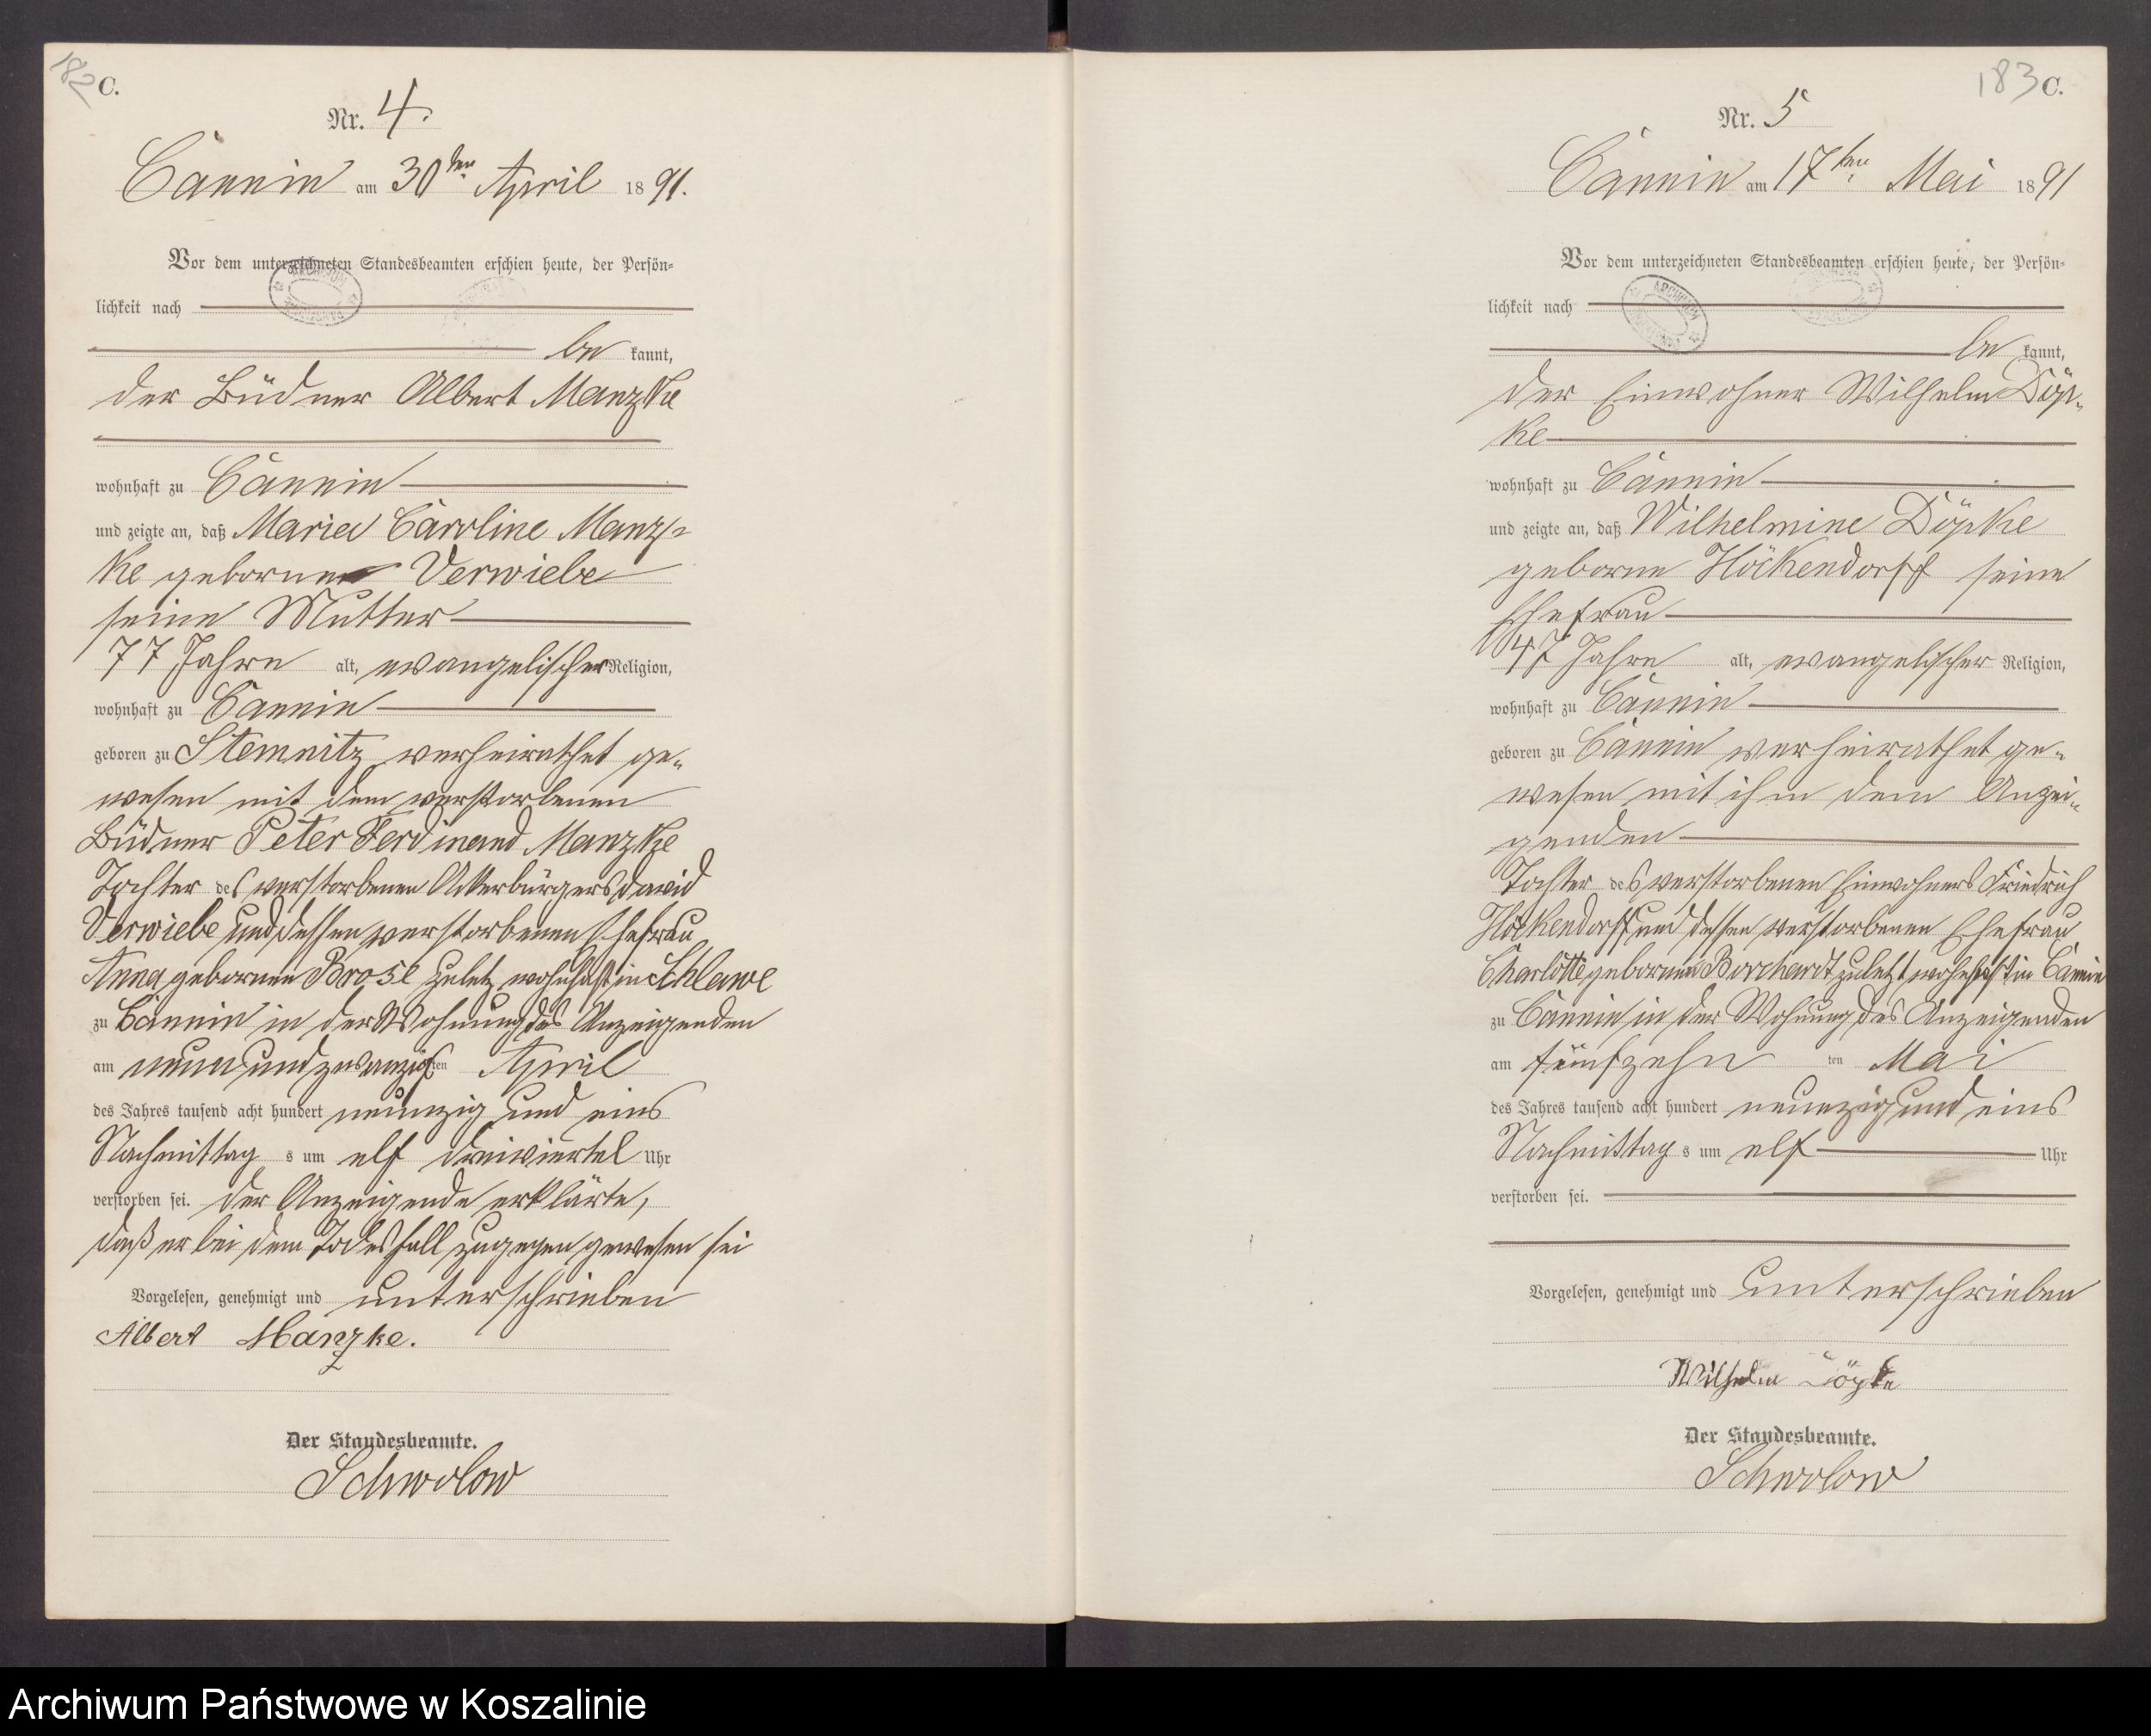 182 C.
Nr. 4.
Cannin am 30ten April 1891.
Vor dem unterzeichneten Standesbeamten erschien heute, der Persön=
lichkeit nach
be kannt,
der Büdner Albert Manzke
wohnhaft zu Cannin
und zeigte an, daß Maria Caroline Manz=
ke geborne Verwiebe
seine Mutter
77 Jahre alt, evangelischer Religion,
wohnhaft zu Cannin
geboren zu Stemnitz verheirathet ge=
wesen mit dem verstorbenen
Büdner Peter Ferdinand Manzke
Tochter des verstorbenen Ackerbürgers David
Verwiebe und dessen verstorbenen Ehefrau
Anna gebornen Brose zuletz wohnhaft in Schlawe
zu Cannin in der Wohnung des Anzeigenden
am neunundzwanzigsten April
des Jahres tausend acht hundert neunzig und eins
Nachmittags um elf dreiviertel Uhr
verstorben sei. der Anzeigende erklärte,
daß er bei dem Todesfall zugegen gewesen sei
Vorgelesen, genehmigt und unterschrieben
Albert Manzke.
Der Standesbeamte.
Schwolow
183 C.
Nr. 5
Cannin am 17ten Mai 1891
Vor dem unterzeichneten Standesbeamten erschien heute, der Persön=
lichkeit nach
ARCHIWUM
be kannt,
der Einwohner Wilhelm Döp=
ke
wohnhaft zu Cannin
und zeigte an, daß Wilhelmine Döpke
geborne Höckendorff seine
Ehefrau
47 Jahre alt, evangelischer Religion,
wohnhaft zu Cannin
geboren zu Cannin verheirathet ge=
wesen mit ihm dem Anzei=
genden
Tochter des verstorbenen Einwohners Friedrich
Höckendorff und dessen verstorbenen Ehefrau
Charlotte gebornen Borchardt zuletzt wohnhaft in Cannin
zu Cannin in der Wohnung des Anzeigenden
am fünfzehn ten Mai
des Jahres tausend acht hundert neunzig und eins
Nachmittags um elf Uhr
verstorben sei.
Vorgelesen, genehmigt und unterschrieben
Wilhelm Döpke
Der Standesbeamte.
Schwolow
Archiwum Państwowe w Koszalinie